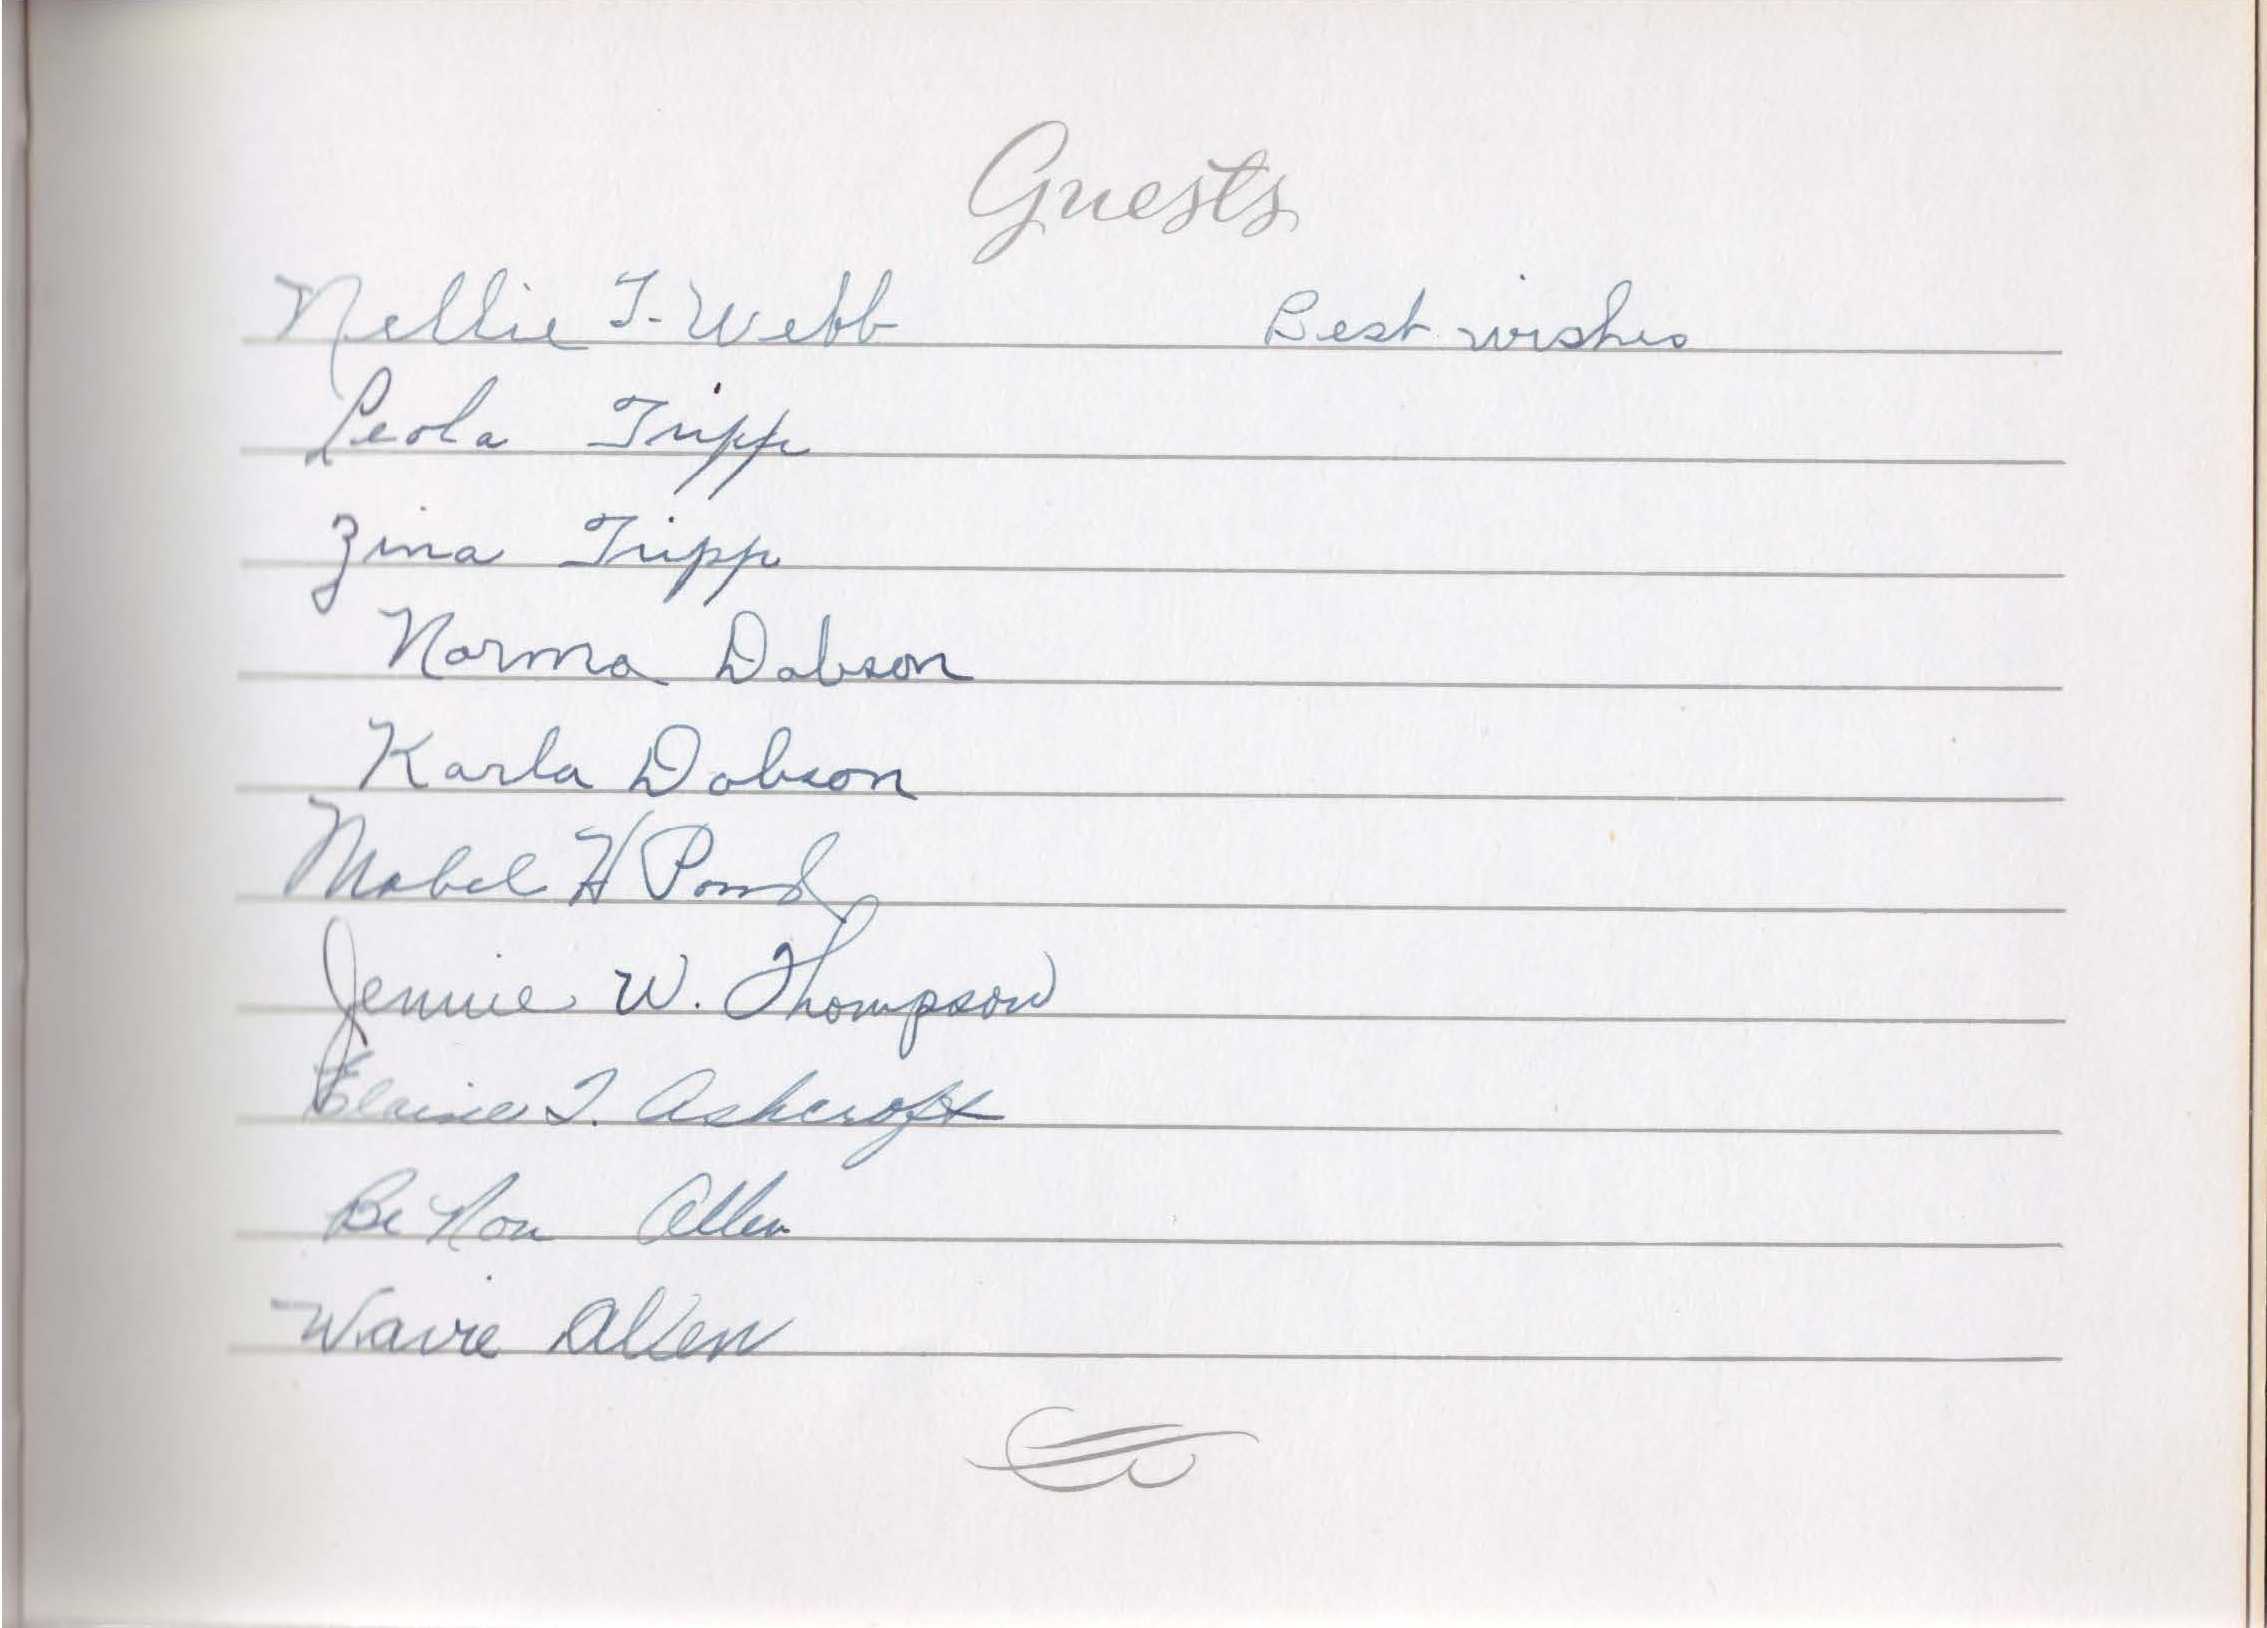 Guests
Nellie T. Webb Best wishes
Leola Tripp
Zina Tripp
Norma Dobson
Karla Dobson
Mabel H Pond
Jennie W. Thompson
Elaine T. Ashcroft
Be Non Allen
Wavie Allen